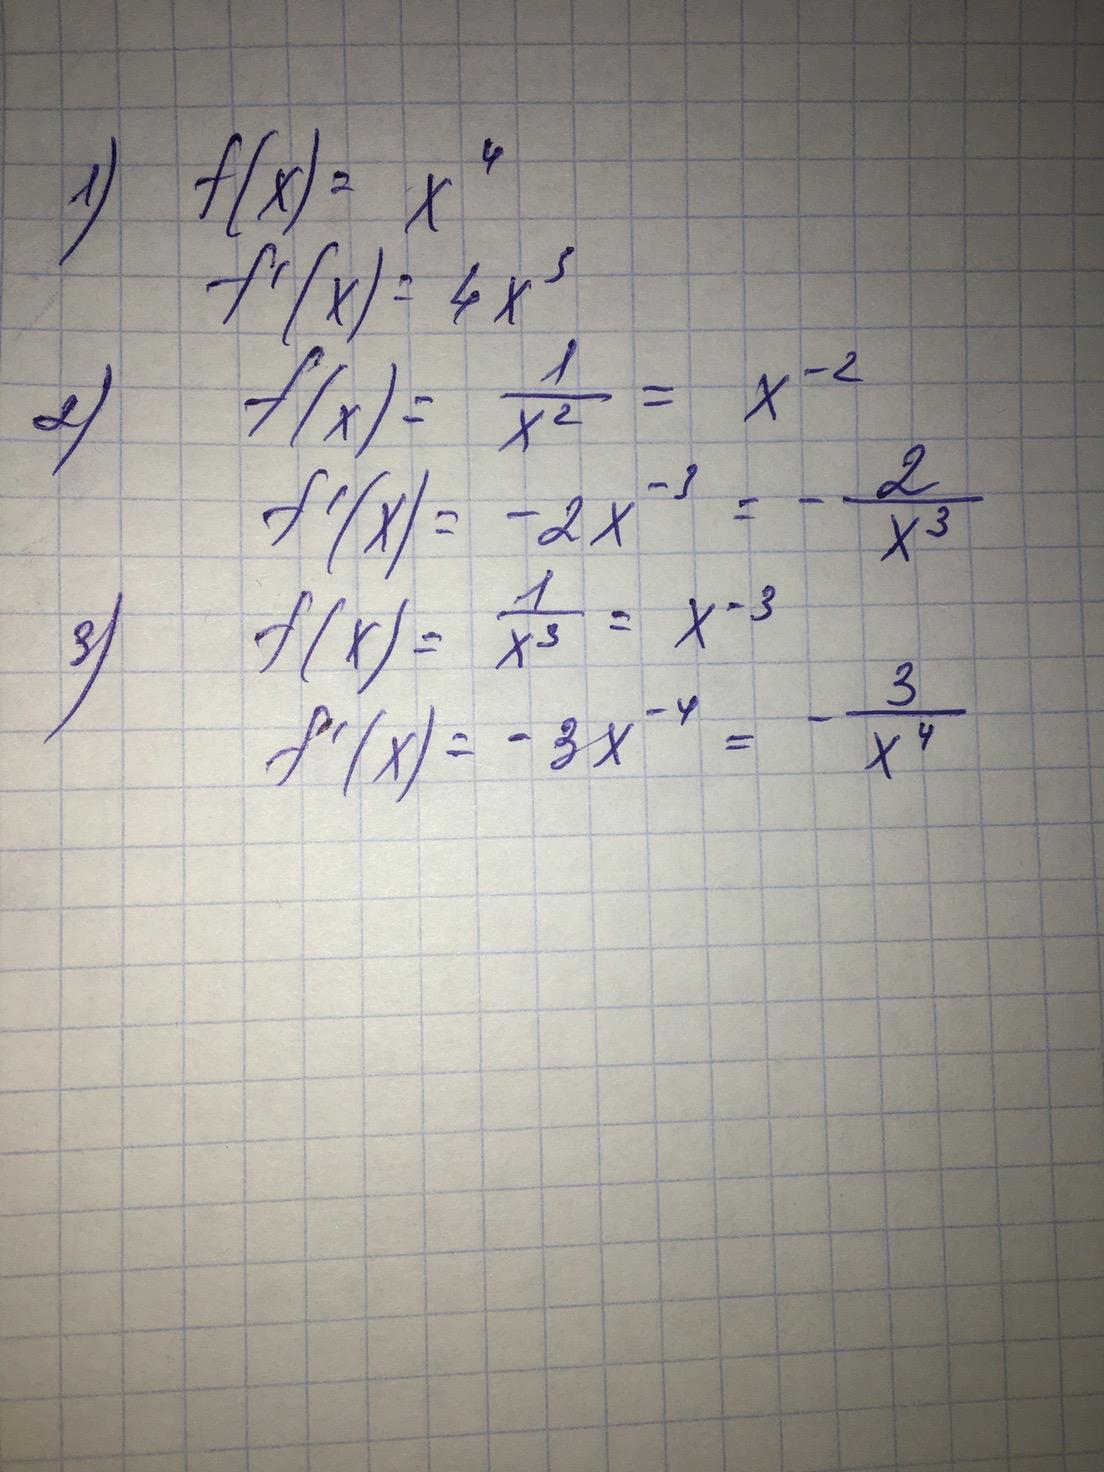 1) f(x) = x⁴
f'(x) = 4x³
2) f(x) = 1/x² = x⁻²
f'(x) = -2x⁻³ = - 2/x³
3) f(x) = 1/x³ = x⁻³
f'(x) = -3x⁻⁴ = - 3/x⁴